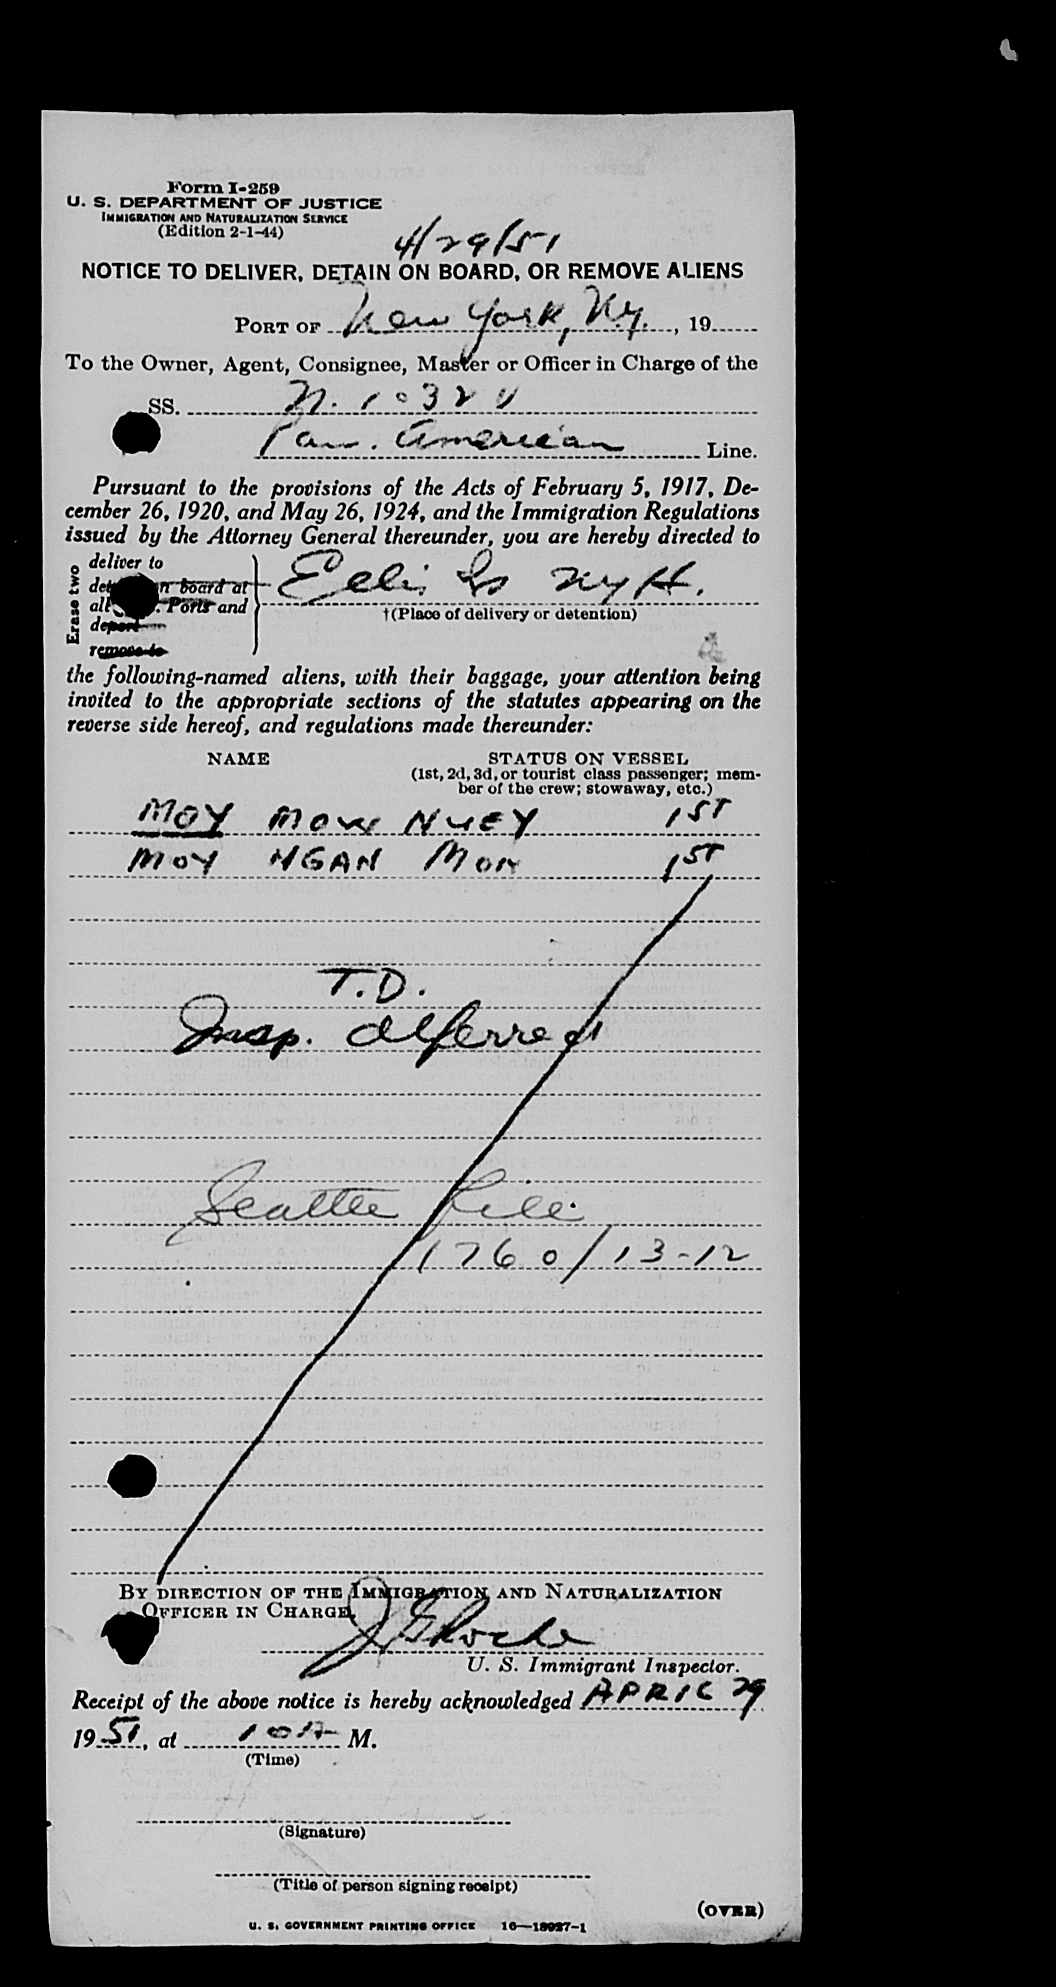 Form I-259
U. S. DEPARTMENT OF JUSTICE
IMMIGRATION AND NATURALIZATION SERVICE
(Edition 2-1-44)
4/29/51
NOTICE TO DELIVER, DETAIN ON BOARD, OR REMOVE ALIENS
PORT OF New York, N.Y., 19
To the Owner, Agent, Consignee, Master or Officer in Charge of the
SS. N. 1032 V
Pan. American Line.
Pursuant to the provisions of the Acts of February 5, 1917, De-
cember 26, 1920, and May 26, 1924, and the Immigration Regulations
issued by the Attorney General thereunder, you are hereby directed to
Erase two
deliver to
board at
all Ports and
deport
remove to
Ellis Is NYH.
†(Place of delivery or detention)
the following-named aliens, with their baggage, your attention being
invited to the appropriate sections of the statutes appearing on the
reverse side hereof, and regulations made thereunder:
NAME STATUS ON VESSEL
(1st, 2d, 3d, or tourist class passenger; mem-
ber of the crew; stowaway, etc.)
MOY MOW NUEY 1ST
MOY NGAN MON 1ST
T.D.
Insp. deferred
Seattle file
1760/13-12
BY DIRECTION OF THE IMMIGRATION AND NATURALIZATION
OFFICER IN CHARGE
J G Roche
U. S. Immigrant Inspector.
Receipt of the above notice is hereby acknowledged APRIL 29
1951, at 10 A M.
(Time)
(Signature)
(Title of person signing receipt)
(OVER)
U. S. GOVERNMENT PRINTING OFFICE 16—18927-1